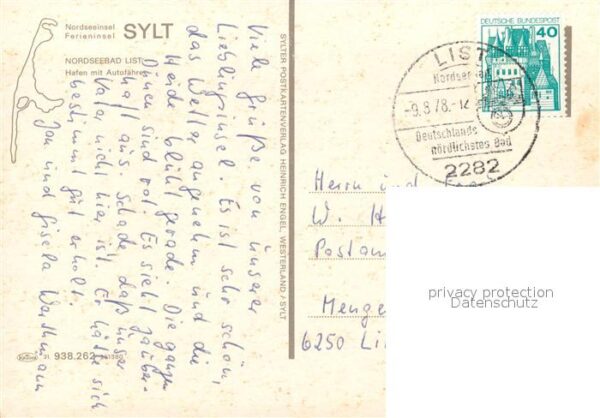 Nordseeinsel
Ferieninsel SYLT
NORDSEEBAD LIST
Hafen mit Autofähren
Viele Grüße von unserer
Lieblingsinsel. Es ist sehr schön,
das Wetter angenehm und die
Heide blüht gerade. Die ganzen
Dünen sind rot! Es sieht zauber-
haft aus. Schade, daß unser
Vater nicht hier ist. Er hätte sich
bestimmt gut erholt.
Jan und Gisela
938.262
SYLTER POSTKARTENVERLAG HEINRICH ENGEL, WESTERLAND / SYLT
DEUTSCHE BUNDESPOST
40
LIST
Nordseebad
-9.8.78.-12
Deutschlands
nördlichstes Bad
2282
Herrn und
W. H
Postam
Menge
6250 Li
privacy protection
Datenschutz